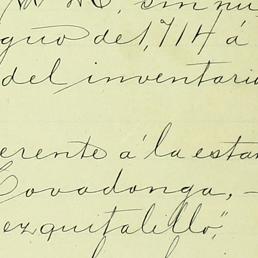 sin nu
gno de 1,714 á
del inventari
erente á la esta
Covadonga, —
ezquitalillo,"